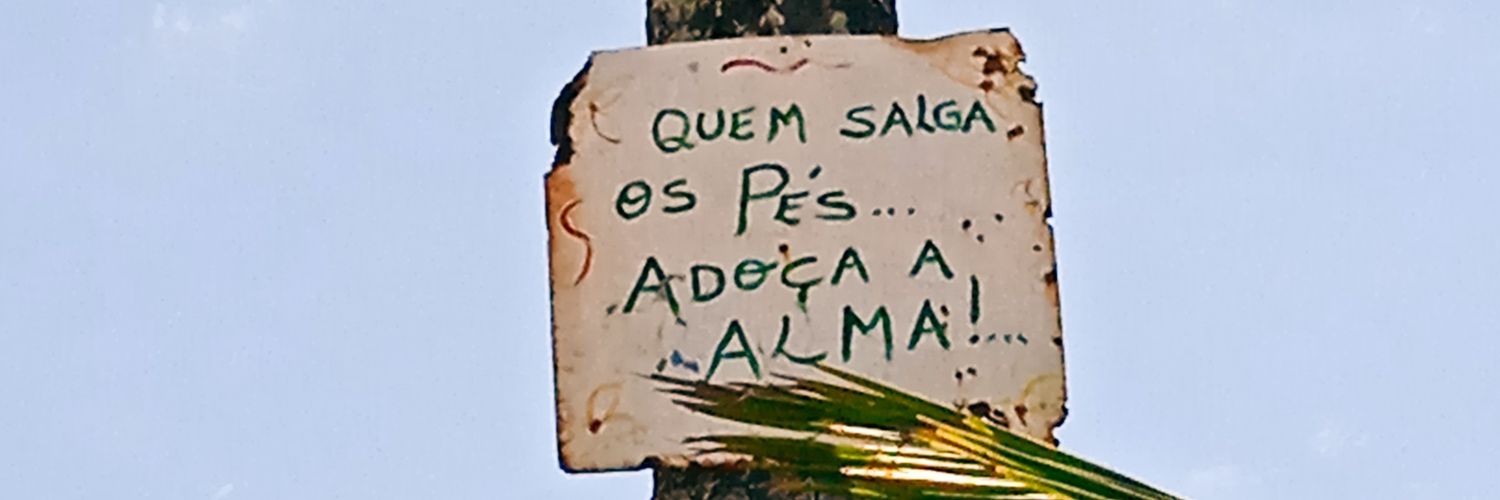 QUEM SALGA
OS PÉS...
ADOÇA A
ALMA!...